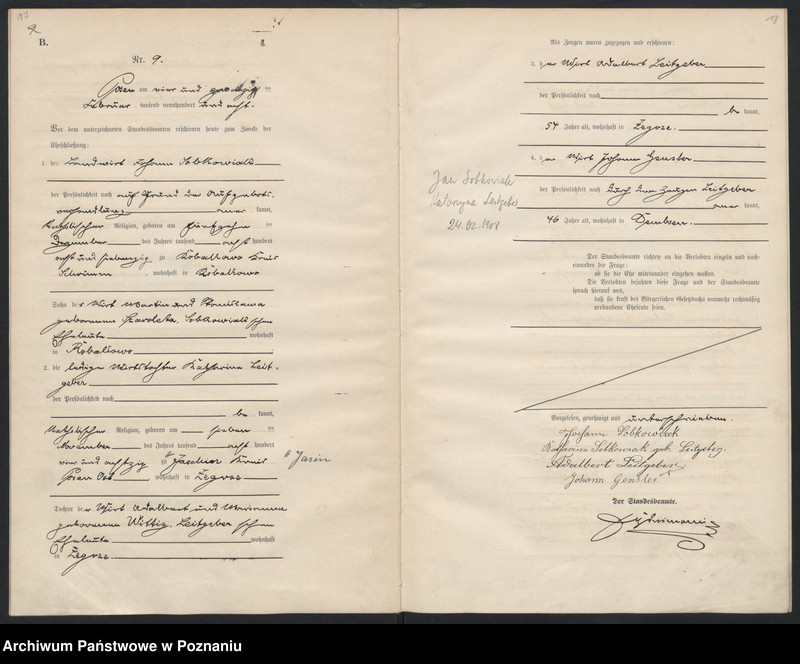 9
B.
Nr. 9.
Posen am vier und zwanzigsten
Februar tausend neunhundert und acht.
Vor dem unterzeichneten Standesbeamten erschienen heute zum Zwecke der
Eheschließung:
1. der Landwirt Johann Sobkowiak
der Persönlichkeit nach auf Grund der Aufgebots-
verhandlung kannt,
katholischer Religion, geboren am fünfzehn ten
Dezember des Jahres tausend acht hundert
acht und siebenzig zu Kobalkowo Kreis
Schrimm, wohnhaft in Kobalkowo
Sohn des Wirt Martin und Stanislawa
geborenen Sobkowiak'schen
Eheleute wohnhaft
in Kobalkowo
2. die ledige Wirtstochter Katharina Leit-
geber
der Persönlichkeit nach
be kannt,
katholischer Religion, geboren am sieben ten
November des Jahres tausend acht hundert
vier und achtzig zu Kreis
Posen Ost wohnhaft in Zegrze
Jasin
Tochter des Wirt Adalbert und Marianna
geborenen Wittig, Leitgeber'schen
Eheleute wohnhaft
in Zegrze.
18
Als Zeugen waren zugezogen und erschienen:
3. der Wirt Adalbert Leitgeber
der Persönlichkeit nach
be kannt,
54 Jahre alt, wohnhaft in Zegrze.
4. der Wirt Johann Gensler
der Persönlichkeit nach durch den Zeugen Leitgeber
kannt,
46 Jahre alt, wohnhaft in Dembsen.
Jan Sobkowiak
Katarzyna Leitgeber
24.02.1908
Der Standesbeamte richtete an die Verlobten einzeln und nach-
einander die Frage:
ob sie die Ehe miteinander eingehen wollen.
Die Verlobten bejahten diese Frage und der Standesbeamte
sprach hierauf aus,
daß sie kraft des Bürgerlichen Gesetzbuchs nunmehr rechtmäßig
verbundene Eheleute seien.
Vorgelesen, genehmigt und unterschrieben.
Johann Sobkowiak
Katharina Sobkowiak geb. Leitgeber.
Adalbert Leitgeber
Johann Gensler
Der Standesbeamte.
Archiwum Państwowe w Poznaniu